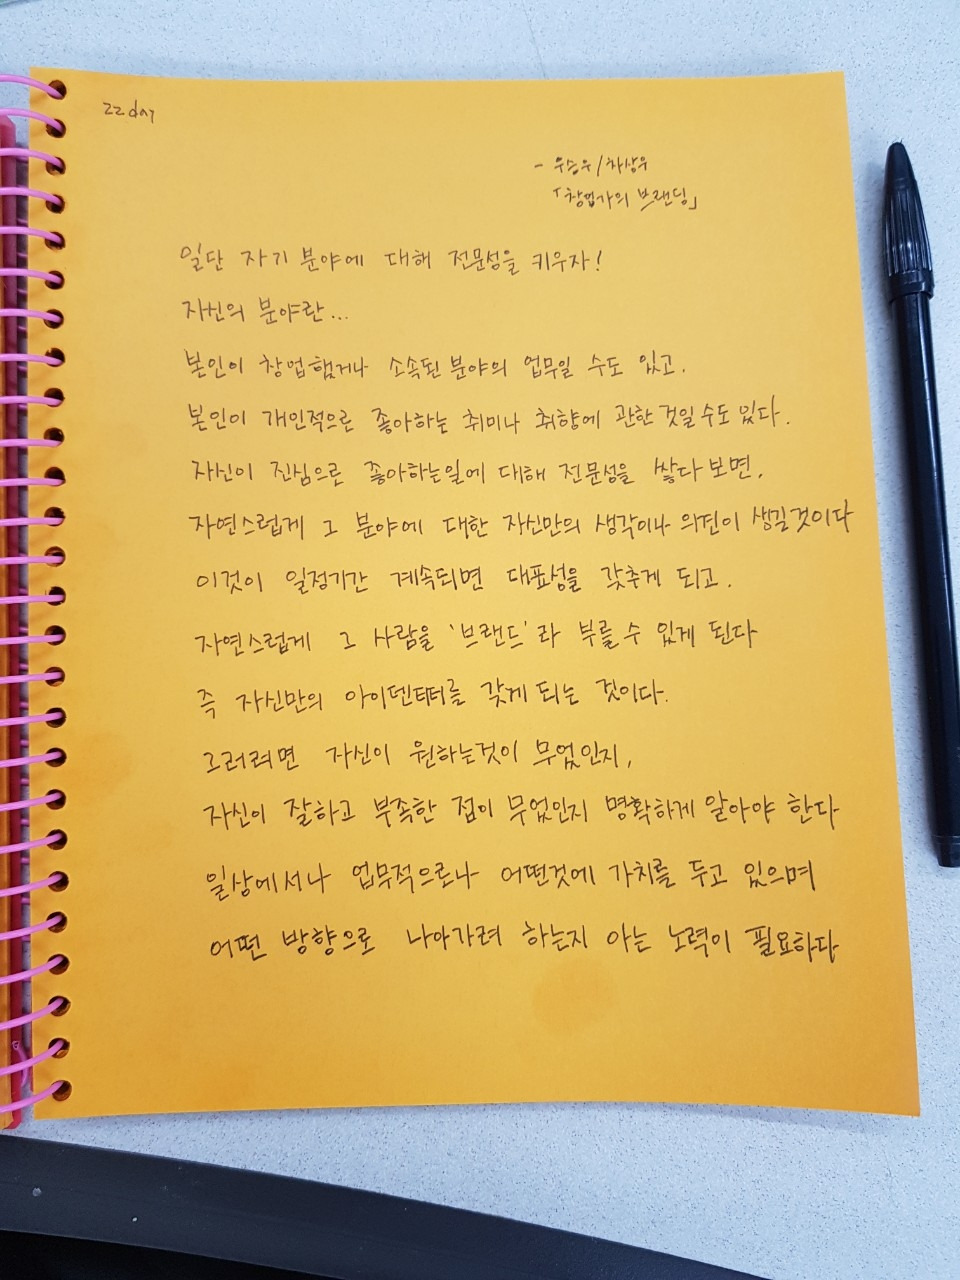 22day
- 우승우/차상우
「창업가의 브랜딩」
일단 자기 분야에 대해 전문성을 키우자!
자신의 분야란...
본인이 창업했거나 소속된 분야의 업무일 수도 있고,
본인이 개인적으로 좋아하는 취미나 취향에 관한 것일 수도 있다.
자신이 진심으로 좋아하는일에 대해 전문성을 쌓다 보면,
자연스럽게 그 분야에 대한 자신만의 생각이나 의견이 생길것이다
이것이 일정기간 계속되면 대표성을 갖추게 되고.
자연스럽게 그 사람을 '브랜드'라 부를 수 있게 된다
즉 자신만의 아이덴티티를 갖게 되는 것이다.
그러려면 자신이 원하는것이 무엇인지,
자신이 잘하고 부족한 점이 무엇인지 명확하게 알아야 한다
일상에서나 업무적으로나 어떤것에 가치를 두고 있으며
어떤 방향으로 나아가려 하는지 아는 노력이 필요하다